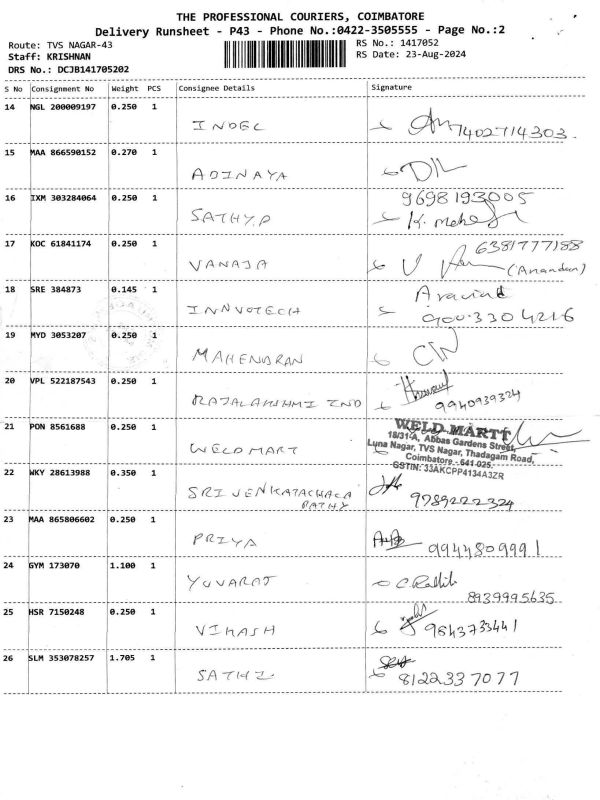 THE PROFESSIONAL COURIERS, COIMBATORE
Delivery Runsheet - P43 - Phone No.:0422-3505555 - Page No.:2
Route: TVS NAGAR-43
RS No.: 1417052
Staff: KRISHNAN
RS Date: 23-Aug-2024
DRS No.: DCJB141705202
S No Consignment No Weight PCS Consignee Details Signature
14 NGL 200009197 0.250 1
INDEL 7402714303.
15 MAA 866590152 0.270 1
ADINAYA
16 IXM 303284064 0.250 1 9698193005
SATHY.P
17 KOC 61841174 0.250 1 6381777188
VANAJA (Anandan)
18 SRE 384873 0.145 1 Aravind
INNVOTECH 9003304216
19 MYD 3053207 0.250 1
MAHENDRAN
20 VPL 522187543 0.250 1
RAJALAKHMI IND 9940939324
21 PON 8561688 0.250 1
WELDMART
WELD MARTT
18/31-A, Abbas Gardens Street,
Luna Nagar, TVS Nagar, Thadagam Road,
Coimbatore - 641 025.
GSTIN: 33AKCPP4134A3ZR
22 WKY 28613988 0.350 1
SRIVENKATACHALA
PATHY 9789222324
23 MAA 865806602 0.250 1
PRIYA 9944809991
24 GYM 173070 1.100 1
YUVARAJ
8939995635
25 HSR 7150248 0.250 1
VIKASH 9843733441
26 SLM 353078257 1.705 1
SATHI 8122337077